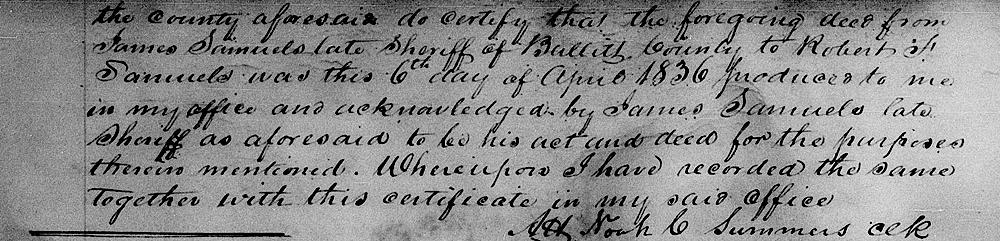 the county aforesaid do certify that the foregoing deed from
James Samuels late Sheriff of Bullitt County to Robert F
Samuels was this 6th day of April 1836 produced to me
in my office and acknowledged by James Samuels late
Sheriff as aforesaid to be his act and deed for the purposes
therein mentioned. Whereupon I have recorded the same
together with this certificate in my said office
Att Noah C Summers clk